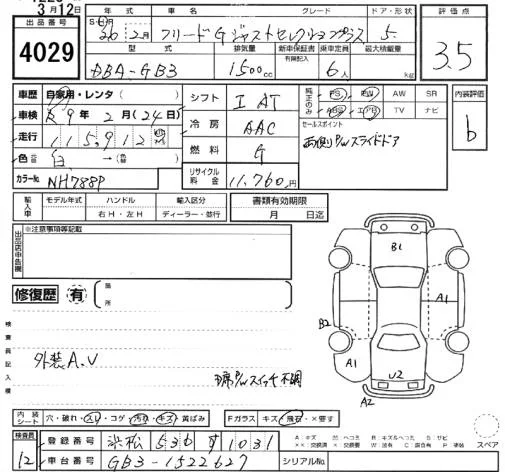 3月12日
出品番号
4029
年式 車名 グレード ドア・形状
S・H 26年2月 フリード G ジャストセレクションプラス 5
型式 排気量 新車保証書 乗車定員 最大積載量
有無記入
DBA-GB3 1500cc 6人 kg
評価点
3.5
車歴 自家用・レンタ シフト I AT
車検 R9年2月(24日) 冷房 AAC
走行 115,912 燃料 G
色 白 → リサイクル料金 11,760円
カラーNo NH788P
純正のみ PS PW AW SR
ABS エアB TV ナビ
セールスポイント
両側P/Wスライドドア
内装評価
b
輸入車 モデル年式 ハンドル 輸入区分 書類有効期限
年 右H・左H ディーラー・並行 月 日迄
出品店申告欄 ※注意事項等記載
修復歴 有 箇所
検査員記入欄
外装A.U
P/Wスイッチ不調
B1
A1
B2
A1
U2
A2
内装シート 穴・破れ・スレ・コゲ・汚れ・キズ・黄ばみ Fガラス キズ・飛石・×要す
検査員
12
登録番号 浜松 536 す 1031
車台番号 GB3-1522627 シリアルNo.
スペア